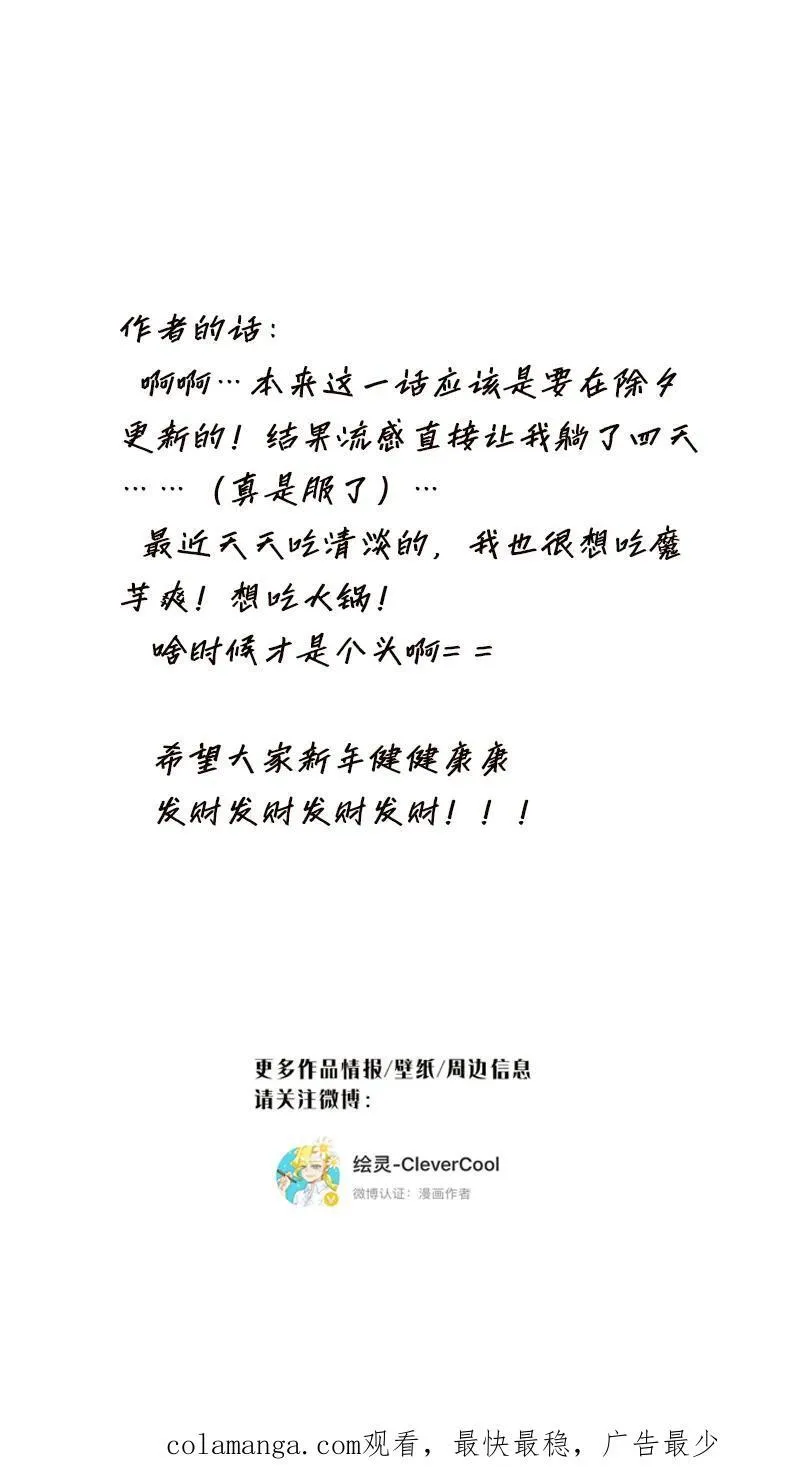 作者的话：
啊啊…本来这一话应该是要在除夕
更新的！结果流感直接让我躺了四天
……（真是服了）…
最近天天吃清淡的，我也很想吃魔
芋爽！想吃火锅！
啥时候才是个头啊= =
希望大家新年健健康康
发财发财发财发财！！！
更多作品情报/壁纸/周边信息
请关注微博：
绘灵-CleverCool
微博认证：漫画作者
colamanga.com观看，最快最稳，广告最少